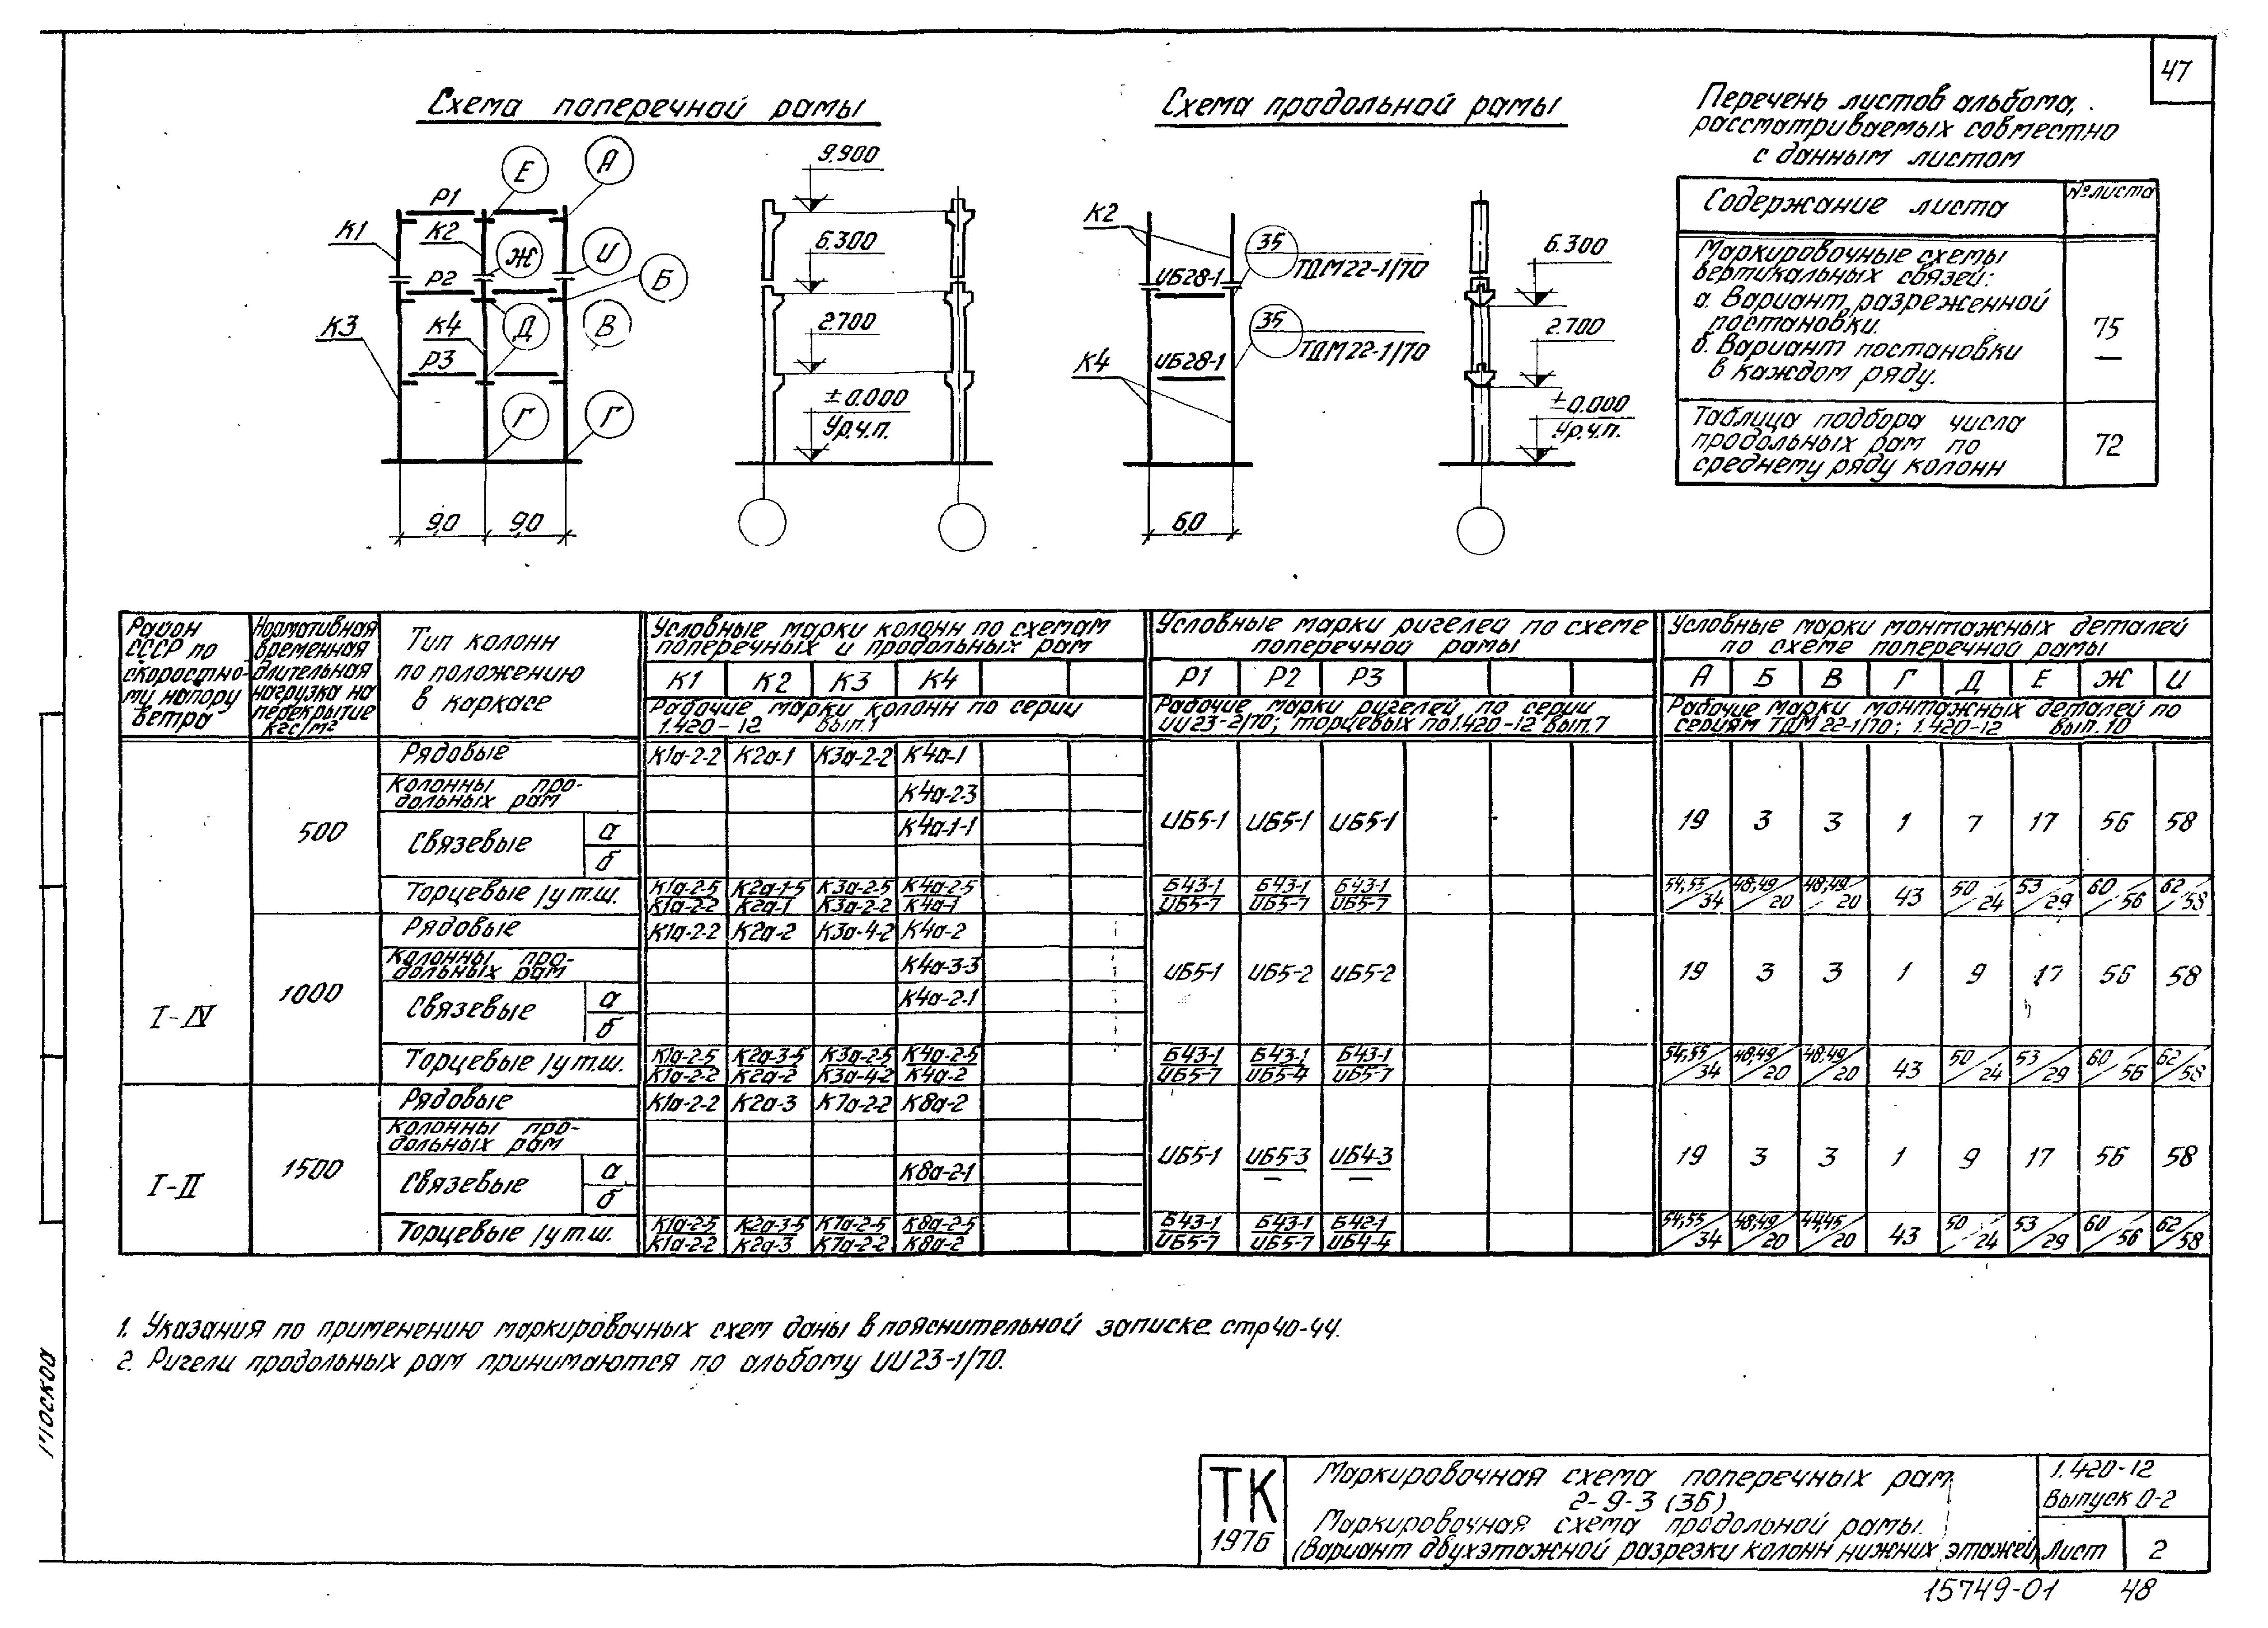 47
Схема поперечной рамы
Схема продольной рамы
Перечень листов альбома,
рассматриваемых совместно
с данным листом
Содержание листа
№ листа
Маркировочные схемы
вертикальных связей:
а. Вариант разреженной
постановки.
б. Вариант постановки
в каждом ряду.
75
—
Таблица подбора числа
продольных рам по
среднему ряду колонн
72
Р1
Е
А
К1
К2
Ж
И
Р2
Б
К3
К4
Д
В
Р3
Г
Г
9,0
9,0
9.900
6.300
2.700
±0.000
Ур.ч.п.
К2
35
ТДМ22-1/70
ИБ28-1
35
ТДМ22-1/70
К4
ИБ28-1
6,0
6.300
2.700
±0.000
Ур.ч.п.
Район
СССР по
скоростно-
му напору
ветра
Нормативная
временная
длительная
нагрузка на
перекрытие
кгс/м²
Тип колонн
по положению
в каркасе
Условные марки колонн по схемам
поперечных и продольных рам
К1 К2 К3 К4
Рабочие марки колонн по серии
1.420-12 вып.1
Условные марки ригелей по схеме
поперечной рамы
Р1 Р2 Р3
Рабочие марки ригелей по серии
ИИ23-2/70; торцевых по 1.420-12 вып.7
Условные марки монтажных деталей
по схеме поперечной рамы
А Б В Г Д Е Ж И
Рабочие марки монтажных деталей по
сериям ТДМ 22-1/70; 1.420-12 вып.10
I-IV
500
Рядовые К1а-2-2 К2а-1 К3а-2-2 К4а-1
Колонны про-
дольных рам К4а-2-3
Связевые а К4а-1-1
б
ИБ5-1 ИБ5-1 ИБ5-1 19 3 3 1 7 17 56 58
Торцевые /у т.ш. К1а-2-5 К2а-1-5 К3а-2-5 К4а-2-5 Б43-1 Б43-1 Б43-1 54,55/34 48,49/20 48,49/20 43 50/24 53/29 60/56 62/58
К1а-2-2 К2а-1 К3а-2-2 К4а-1 ИБ5-7 ИБ5-7 ИБ5-7
1000
Рядовые К1а-2-2 К2а-2 К3а-4-2 К4а-2
Колонны про-
дольных рам К4а-3-3
Связевые а К4а-2-1
б
ИБ5-1 ИБ5-2 ИБ5-2 19 3 3 1 9 17 56 58
Торцевые /у т.ш. К1а-2-5 К2а-3-5 К3а-2-5 К4а-2-5 Б43-1 Б43-1 Б43-1 54,55/34 48,49/20 48,49/20 43 50/24 53/29 60/56 62/58
К1а-2-2 К2а-2 К3а-4-2 К4а-2 ИБ5-7 ИБ5-7
I-II
1500
Рядовые К1а-2-2 К2а-3 К7а-2-2 К8а-2
Колонны про-
дольных рам
Связевые а К8а-2-1
б
ИБ5-1 ИБ5-3 ИБ4-3 19 3 3 1 9 17 56 58
— —
Торцевые /у т.ш. К1а-2-5 К2а-3-5 К7а-2-5 К8а-2-5 Б43-1 Б43-1 Б42-1 54,55/34 48,49/20 44,45/20 43 50/24 53/29 60/56 62/58
К1а-2-2 К2а-3 К7а-2-2 К8а-2 ИБ5-7 ИБ5-7 ИБ4-4
1. Указания по применению маркировочных схем даны в пояснительной записке стр 40-44.
2. Ригели продольных рам принимаются по альбому ИИ23-1/70.
Москва
ТК
1976
Маркировочная схема поперечных рам
2-9-3 (3Б)
Маркировочная схема продольной рамы.
(Вариант двухэтажной разрезки колонн нижних этажей)
1.420-12
Выпуск 0-2
Лист 2
15749-01 48